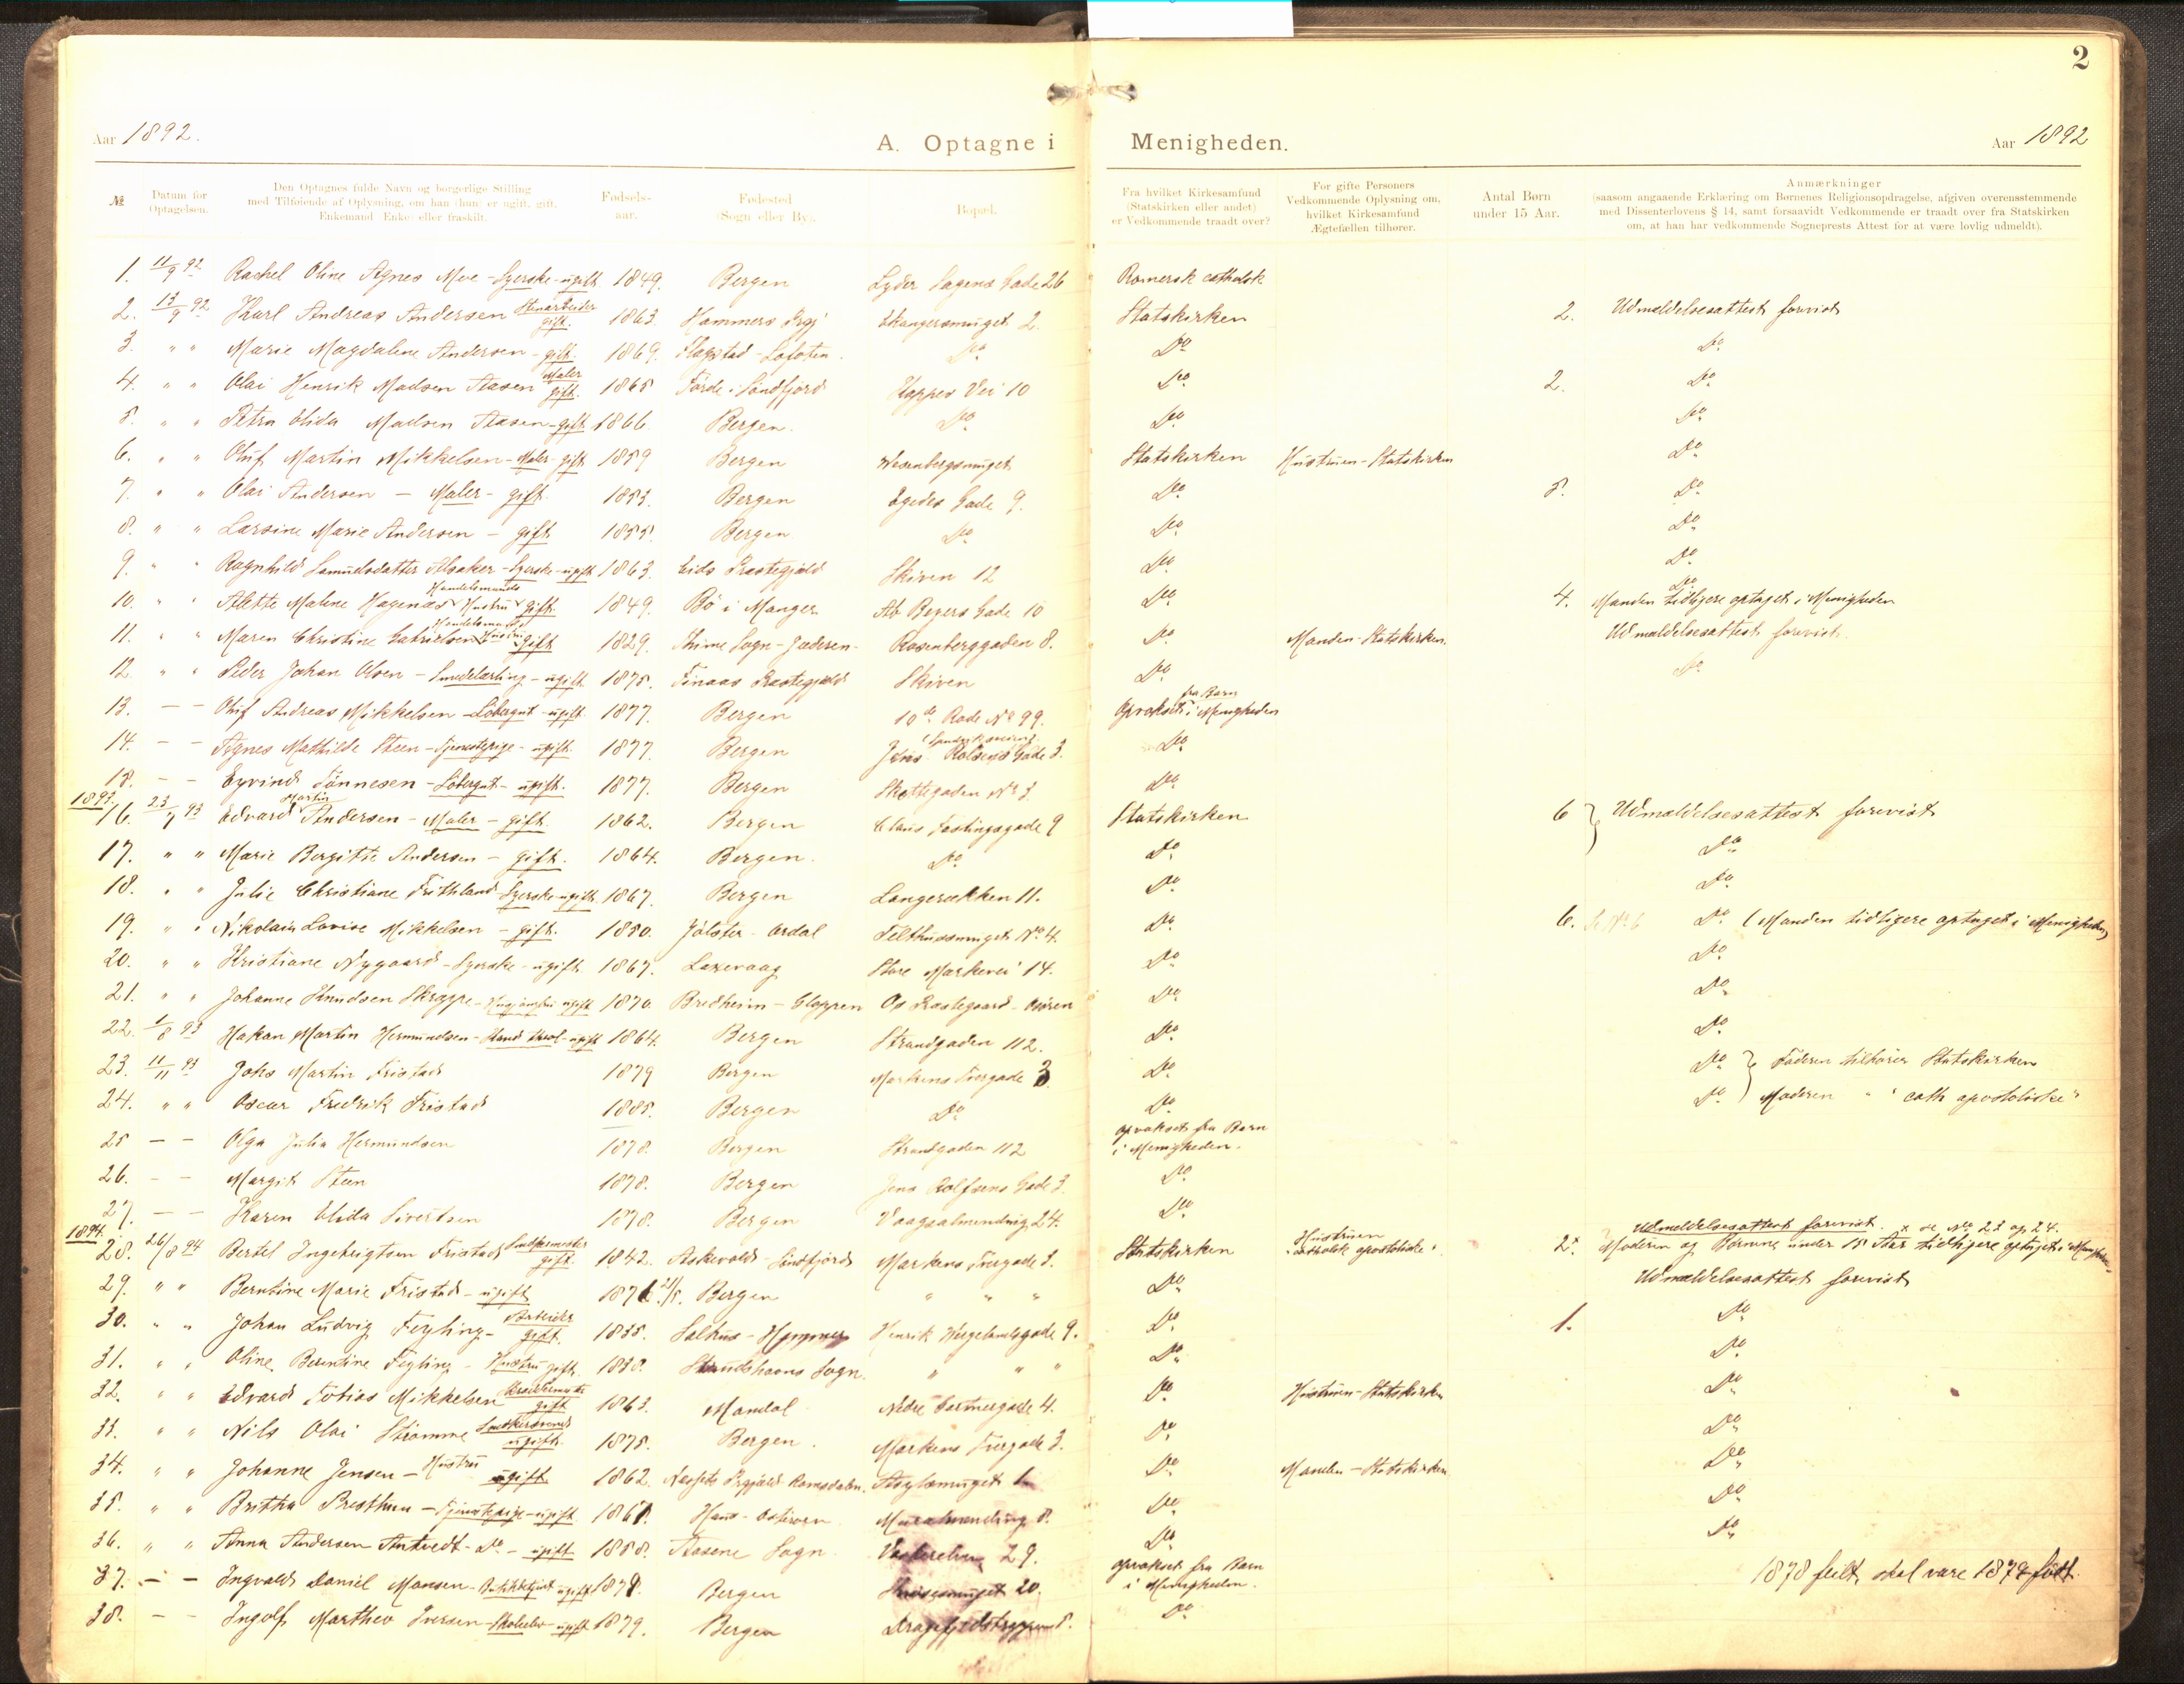 2
Aar 1892.
A. Optagne i Menigheden.
Aar 1892
№
Datum for Optagelsen.
Den Optagnes fulde Navn og borgerlige Stilling med Tilføiende af Oplysning, om han (hun) er ugift, gift, Enkemand (Enke) eller fraskilt.
Fødselsaar.
Fødested (Sogn eller By).
Bopæl.
Fra hvilket Kirkesamfund (Statskirken eller andet) er Vedkommende traadt over?
For gifte Personers Vedkommende Oplysning om, hvilket Kirkesamfund Ægtefællen tilhører.
Antal Børn under 15 Aar.
Anmærkninger
(saasom angaaende Erklæring om Børnenes Religionsopdragelse, afgiven overensstemmende med Dissenterlovens § 14, samt forsaavidt Vedkommende er traadt over fra Statskirken om, at han har vedkommende Sogneprests Attest for at være lovlig udmeldt).
1. 11/9 92 Rachel Oline Agnes Moe - Syerske - ugift 1849. Bergen Lyder Sagens Gade 26 Romersk catholsk
2. 13/9 92 Karl Andreas Andersen Stenarbeider gift. 1863. Hammers Prgj Skangersmuget 2. Statskirken 2. Udmeldelsesattest forevist
3. " " Marie Magdalene Andersen - gift. 1869. Flagstad - Lofoten. Do Do Do
4. " " Olai Henrik Madsen Aasen Maler gift. 1865 Førde i Søndfjord Kappes Vei 10 Do 2. Do
5. " " Petra Elida Madsen Aasen - gift 1866. Bergen. Do Do Do
6. " " Oluf Martin Mikkelsen - Maler - gift 1859 Bergen Wesenbergsmuget Statskirken Hustruen - Statskirken Do
7. " " Olai Andersen - Maler - gift. 1853. Bergen Egedes Gade 9. Do 5. Do
8. " " Larsine Marie Andersen - gift 1855. Bergen. Do Do Do
9. " " Ragnhild Samuelsdatter - Syerske - ugift 1863. Eids Præstegjæld Skiven 12 Do Do
10. " " Alette Malene Hagenæs Handelsmands Hustru gift. 1849. Bø i Manger Ab Beyers Gade 10 Do 4. Do Manden tidligere optaget i Menigheden
11. " " Maren Christine Gabrielsen Handelsmands Hustru gift 1829. Thime Sogn - Jæderen - Rosenberggaden 8. Do Manden - Statskirken. Udmeldelsesattest forevist.
12. " " Peder Johan Olsen - Smedelærling - ugift 1875. Finaas Præstegjæld Skiven Do Do
13. - - Oluf Andreas Mikkelsen - Løbergut - ugift 1877. Bergen 10de Rode No 99. Opvokset fra Barn i Menigheden
14. - - Agnes Mathilde Steen - Tjenestepige - ugift. 1877. Bergen Jens Rolfsens Gade 3. Do
15. - - Eyvind Tønnesen - Løbergut - ugift. 1877. Bergen Skottegaden No 3 Do
1893.
16. 23/7 93 Edvard Martin Andersen - Maler - gift. 1862. Bergen Claus Fastingsgade 9 Statskirken 6 Udmeldelsesattest forevist
17. " " Marie Bergitte Andersen - gift. 1864. Bergen. Do Do Do
18. " " Julie Christiane Frithland - Syerske - ugift. 1867. Bergen Langerækken 11. Do Do
19. " " Nikolaia Lovise Mikkelsen - gift. 1850. Jølster - Ardal Telthussmuget No 4. Do 6. Se No 6 Do (Manden tidligere optaget i Menigheden)
20. " " Kristiane Nygaard - Syerske - ugift 1867. Laxevaag Store Markevei 14. Do Do
21. " " Johanne Knudsen Skrappe - ugift 1870. Bredheim - Gloppen Os Præstegaard - Osøren Do Do
22. 1/8 93 Hakon Martin Hermundsen - Stud. theol - ugift 1864. Bergen Strandgaden 112. Do Do
23. 11/11 93 Johs Martin Fristad 1879 Bergen Markens Tvergade 3. Do Do } Faderen tilhører Statskirken
24. " " Oscar Fredrik Fristad 1885. Bergen Do Do Do } Moderen " "cath apostoliske"
25 - - Olga Julia Hermundsen 1878. Bergen Strandgaden 112 opvokset fra Barn i Menigheden.
26. - - Margit Steen 1878. Bergen Jens Rolfsens Gade 3. Do
27. - - Karen Elida Sivertsen 1878. Bergen Vaagsalmending 24. Do
1894.
28. 26/8 94 Bertel Ingebrigtsen Fristad gift. 1842. Askevold Søndfjord Markens Tvergade 3. Statskirken Hustruen catholsk apostoliske. 2x Udmeldelsesattest forevist. x se No 23 og 24. Moderen og Børnene under 15 Aar tidligere optaget i Menigheden
29. " " Berntine Marie Fristad - ugift 1876 21/5. Bergen " " " Do Udmeldelsesattest forevist
30. " " Johan Ludvig Fegling - Arbeider gift. 1835. Salhus - Hammer Henrik Wergelandsgade 9. Do 1. Do
31. " " Oline Berentine Fegling - Hustru gift. 1838. Sogn. " " " Do Do
32. " " Edvard Tobias Mikkelsen gift 1863. Mandal Nedre 4. Do Hustruen - Statskirken Do
33. " " Nils Olai Strømme ugift. 1875. Bergen. Markens Tvergade 3. Do Do
34. " " Johanne Jensen - Hustru gift 1862. Nessets Prgjæld Romsdalen. Asylsmuget 1 Do Manden - Statskirken Do
35. " " Britha Presthun - Tjenestepige - ugift 1861. Haus - Osterøen Muralmending 8. Do Do
36. " " Anna Andersen Antvedt - Do - ugift 1858. Aasene Sogn. 29. Do Do
37. - - Ingvald Daniel Monsen - ugift 1879. Bergen 20. opvokset fra Barn i Menigheden. 1878 feilt, skal være 1879 født.
38. - - Ingolf Martheo Iversen - Skoleelev - ugift 1879. Bergen 8. Do